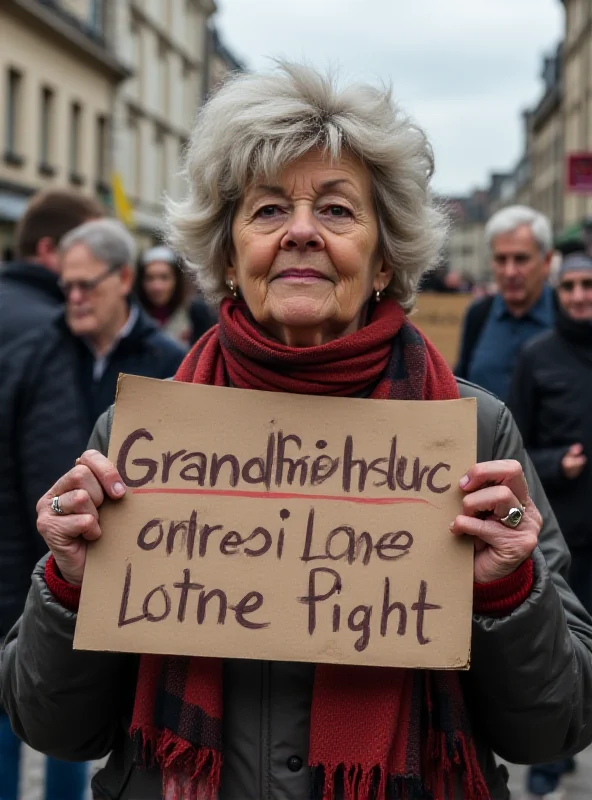 Grandfriohsluc
ontresi Lone
Lotne Pight